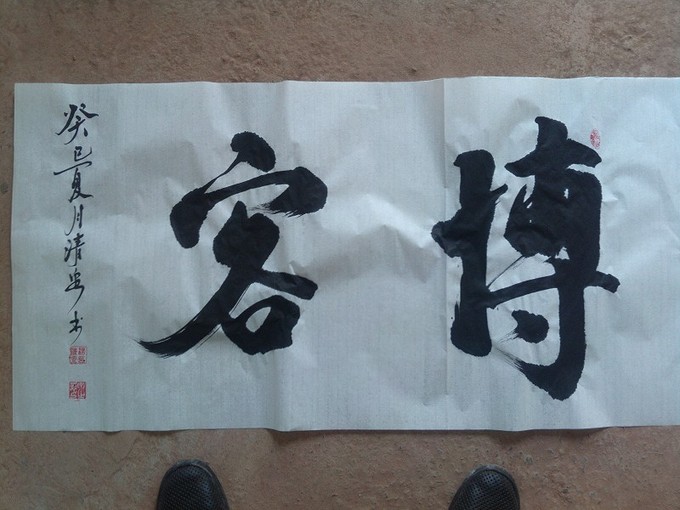 博客
癸巳夏月清安书